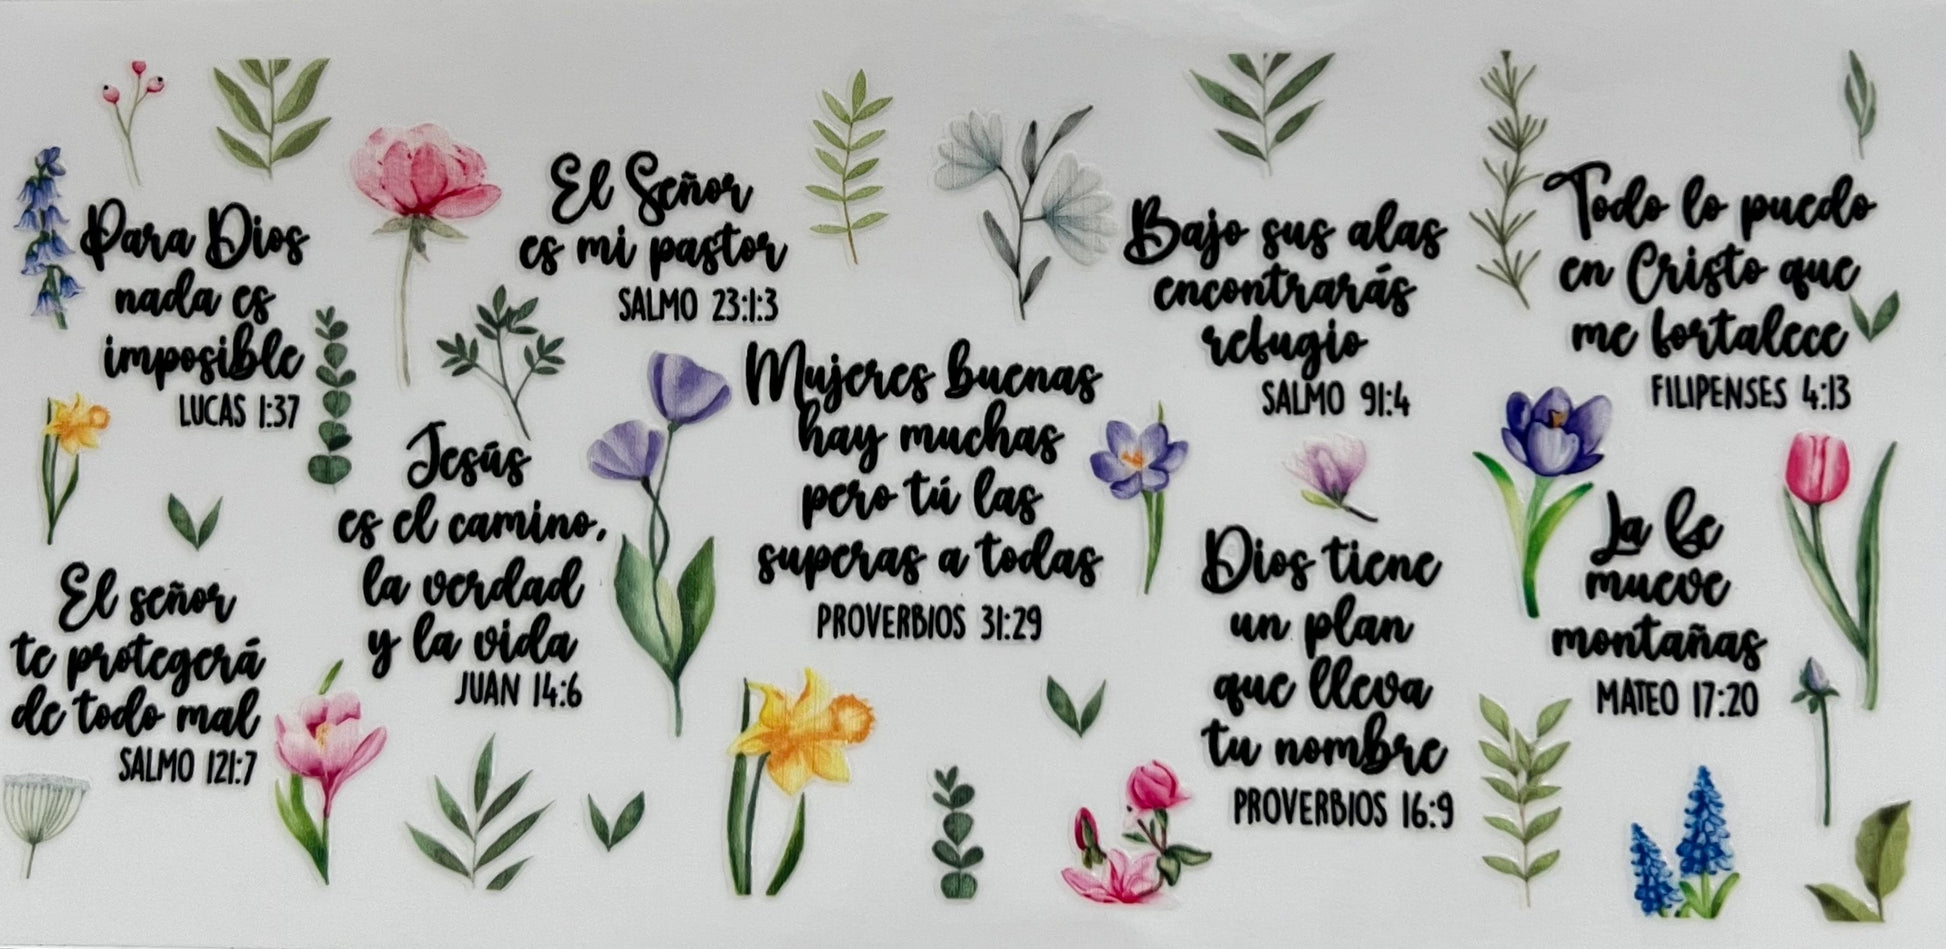 Para Dios
nada es
imposible
LUCAS 1:37
El Señor
es mi pastor
SALMO 23:1:3
Bajo sus alas
encontrarás
refugio
SALMO 91:4
Todo lo puedo
en Cristo que
me fortalece
FILIPENSES 4:13
Mujeres buenas
hay muchas
pero tú las
superas a todas
PROVERBIOS 31:29
Jesús
es el camino,
la verdad
y la vida
JUAN 14:6
El señor
te protegerá
de todo mal
SALMO 121:7
Dios tiene
un plan
que lleva
tu nombre
PROVERBIOS 16:9
La fe
mueve
montañas
MATEO 17:20